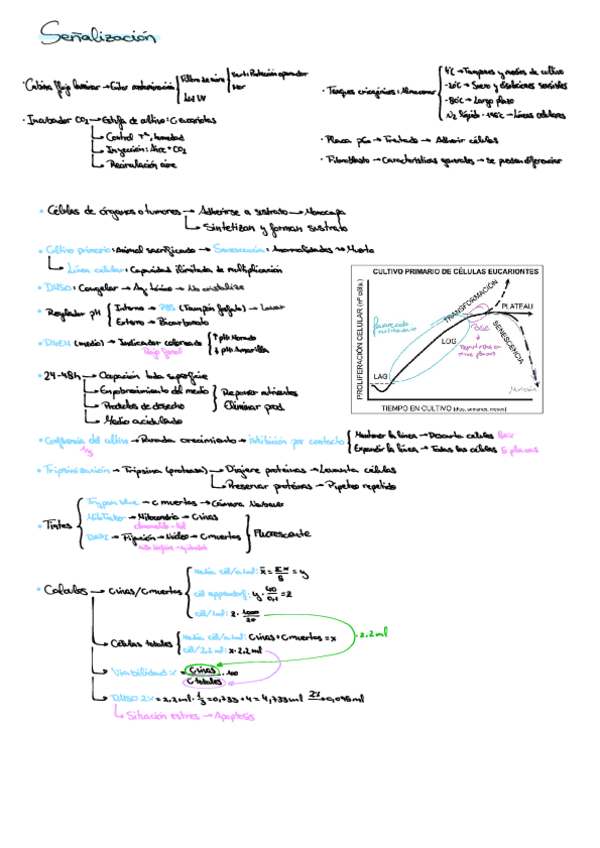 Señalización
· Cabina flujo laminar → Evitar contaminación
Filtro de aire
Vert: Protección operador
Hor
Luz UV
· Incubador CO2 → Estufa de cultivo: C eucariotas
Control Tª, humedad
Inyección: Aire + CO2
Recirculación aire
· Tanques criogénicos: Almacenar
4ºC → Tampones y medios de cultivo
-20ºC → Suero y disoluciones sensibles
-80ºC → Largo plazo
N2 líquido -196ºC → Líneas celulares
· Placa p60 → Tratada → Adherir células
· Fibroblasto → Características generales → Se pueden diferenciar
• Células de órganos o tumores → Adherirse a sustrato → Monocapa
Sintetizan y forman sustrato
• Cultivo primario: Animal sacrificado → Senescencia: Anormalidades → Muerte
Línea celular: Capacidad ilimitada de multiplicación
• DMSO: Congelar → Ag. tónico → No cristalice
• Regulador pH
Interno → PBS (Tampón fosfato) → Lavar
Externo → Bicarbonato
• DMEM (medio) → Indicador coloreado
Rojo fenol
↑ pH: Morado
↓ pH: Amarillo
• 24-48h → Ocupación toda superficie
Empobrecimiento del medio
Productos de desecho
Reponer nutrientes
Eliminar prod.
Medio acidulado
CULTIVO PRIMARIO DE CÉLULAS EUCARIONTES
PROLIFERACIÓN CELULAR (nº céls.)
TRANSFORMACIÓN
PLATEAU
SENESCENCIA
LOG
LAG
TIEMPO EN CULTIVO (días, semanas, meses)
• Confluencia del cultivo → Parada crecimiento → Inhibición por contacto
Mantener la línea → Descarta células
Expandir la línea → Todas las células 5 placas
• Tripsinización → Tripsina (proteasa) → Digiere proteínas → Levanta células
Preservar proteínas → Pipeteo repetido
• Tintes
Trypan blue → C muertas → Cámara Neubauer
MitoTracker → Mitocondria → C vivas
DAPI → Fijación → Núcleo → C muertas
Fluorescente
• Cálculos → C vivas/C muertas
Media cél/0.1ml: x̄ = Σx/8 = y
cél eppendorf: y · 40/0,1 = z
cél/1ml: z · 1000/20
Células totales
Media cél/0.1ml: C vivas + C muertas = x
cél/2,2 ml: x · 2,2 ml
· 2,2 ml
Viabilidad: % = C vivas/C totales · 100
DMSO 2% = 2,2 ml · 1/3 = 0,733 + 4 = 4,733 ml 2% → 0,095 ml
Situación estrés → Apoptosis